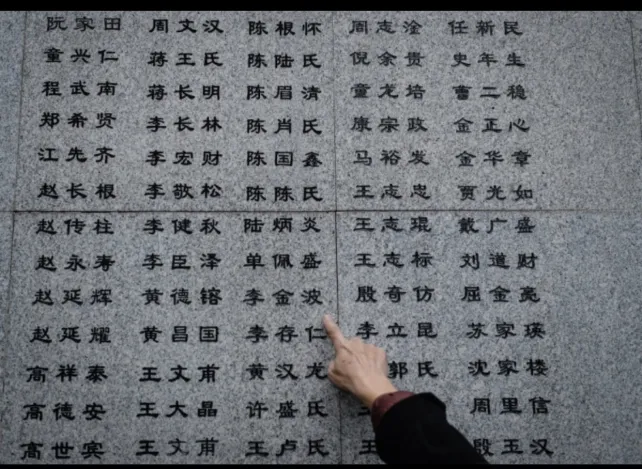 阮家田 周文汉 陈根怀 周志淦 任新民
童兴仁 蒋王氏 陈陆氏 倪余贵 史年生
程武南 蒋长明 陈眉清 童龙培 曹二稳
郑希贤 李长林 陈肖氏 康宗政 金正心
江先齐 李宏财 陈国鑫 马裕发 金华章
赵长根 李敬松 陈陈氏 王志忠 贾光如
赵传柱 李健秋 陆炳炎 王志琨 戴广盛
赵永寿 李臣泽 单佩盛 王志标 刘道财
赵延辉 黄德镕 李金波 殷奇仿 屈金亮
赵延耀 黄昌国 李存仁 李立昆 苏家瑛
高祥泰 王文甫 黄汉龙 郭氏 沈家楼
高德安 王大晶 许盛氏 周里信
高世宾 王文甫 王卢氏 殷玉汉